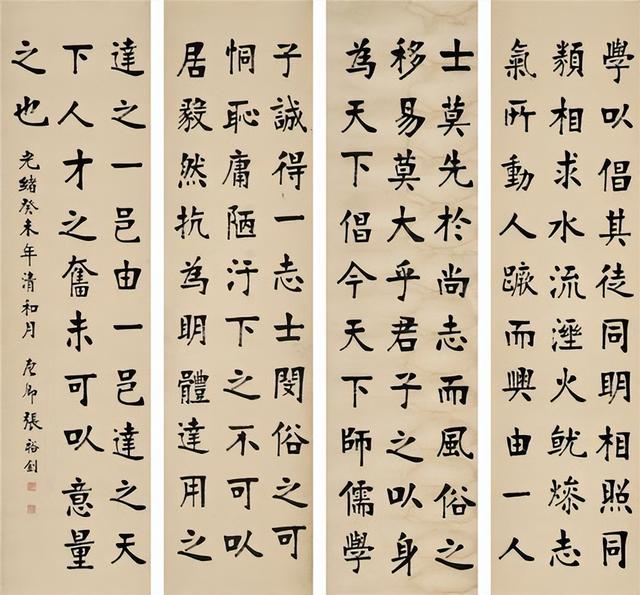 學以倡其徒同明相照同
類相求水流溼火就燥志
氣所動人蹶而興由一人
士莫先於尚志而風俗之
移易莫大乎君子之以身
為天下倡今天下師儒學
子誠得一志士閔俗之可
恫恥庸陋汙下之不可以
居毅然抗為明體達用之
達之一邑由一邑達之天
下人才之奮未可以意量
之也
光緒癸未年清和月 廉卿張裕釗